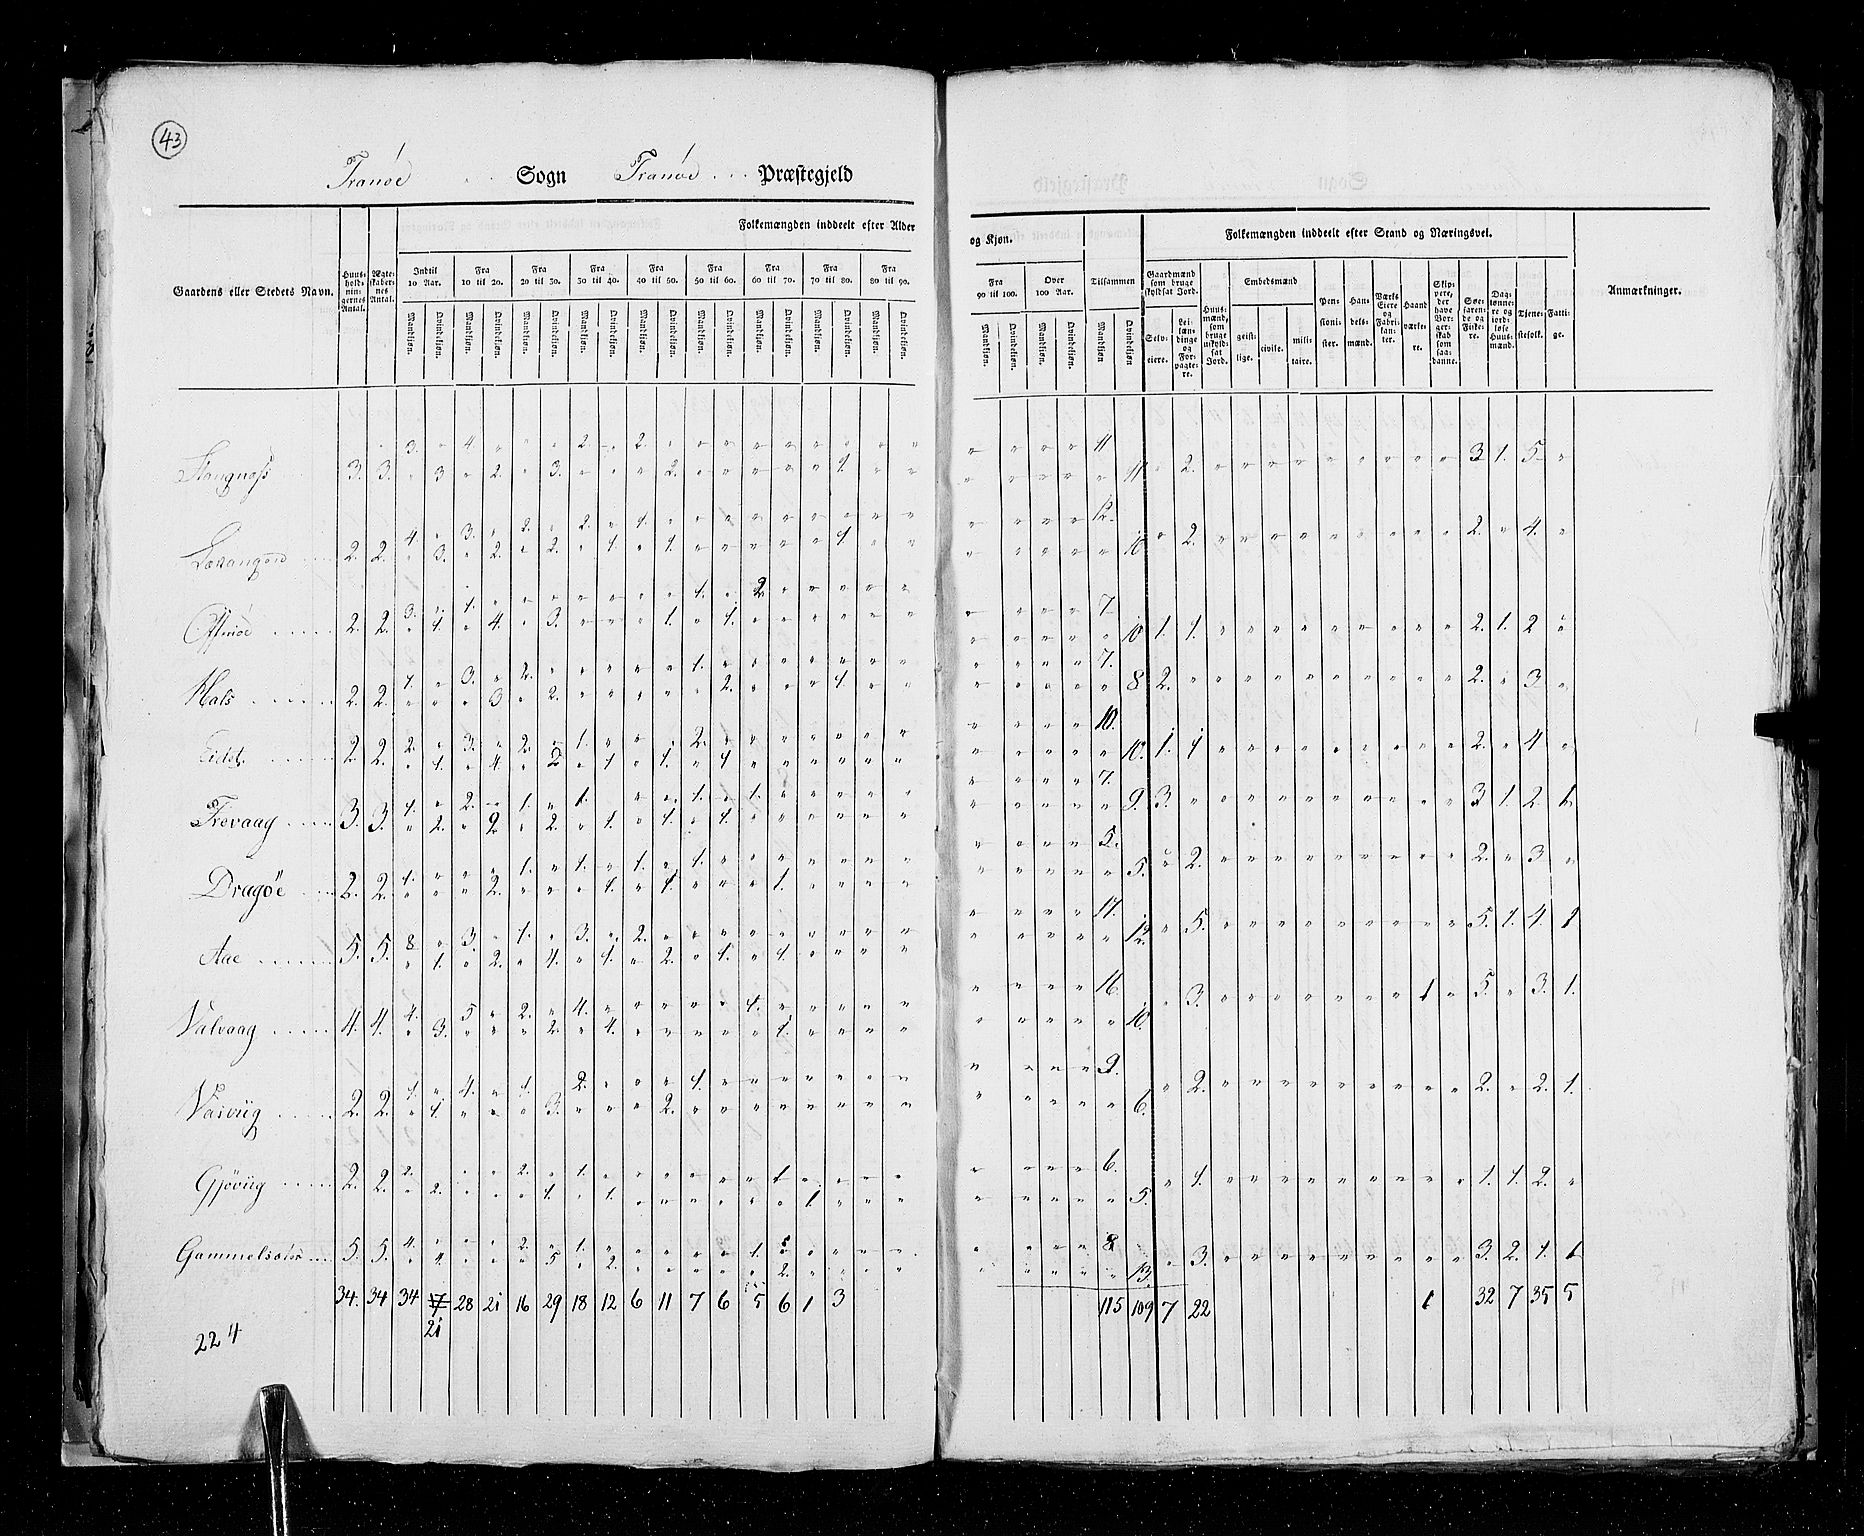 43
Tranöe Sogn Tranöe Præstegjeld
Folkemængden inddeelt efter Alder og Kjøn.
Tilsammen
Folkemængden inddeelt efter Stand og Næringsvei.
Gaardens eller Stedets Navn.
Huusholdningernes Antal.
Ægteskabernes Antal.
Indtil 10 Aar.
Fra 10 til 20.
Fra 20 til 30.
Fra 30 til 40.
Fra 40 til 50.
Fra 50 til 60.
Fra 60 til 70.
Fra 70 til 80.
Fra 80 til 90.
Fra 90 til 100.
Over 100 Aar.
Mandkiøn. Qvindekiøn.
Gaardmænd som bruge skyldsat Jord.
Selveiere.
Leilændinge og Forpagtere.
Huusmænd, som bruge uskyldsat Jord.
Embedsmænd
geistlige.
civile.
militaire.
Pensionister.
Handelsmænd.
Værks Eiere og Fabrikanter.
Haandværkere.
Skippere, der have Borgerskab som saadanne.
Søefarende og Fiskere.
Daglønnere og jordløse Huusmænd.
Tjenestefolk.
Fattige.
Anmærkninger.
Stangnæss 3. 3. 3. 4. 2. 2. 11
3 2. 3. 2. 1. 11 2. 3 1. 5.
2. 2. 4. 3. 2. 2. 1. 12.
3. 2. 2. 1. 1. 1. 10 2. 2. 4.
2. 2. 3. 1. 1. 2 7
1. 4. 3. 1. 1. 10 1. 1. 2. 1. 2
Hals 2. 2. 1. 3. 2. 1. 7.
3 2. 2. 1. 8 2. 2. 3
Eidet 2. 2. 2. 3. 2. 1. 2. 10.
1. 4. 2 1 1. 1 10. 1. 1 2. 4
Trevaag 3. 3. 1. 2. 1. 1. 1. 1. 7.
2. 2 2. 1. 1. 1. 9. 3. 3 1. 2. 1
Dragöe 2. 2. 1. 1. 1. 1. 1. 5.
2. 1. 1. 1. 5. 2. 2. 3
Aae 5. 5. 8 3. 1. 3. 2. 17.
1. 2. 4. 1. 2. 1. 1. 12. 5. 5. 1. 4. 1
Valvaag 4. 4. 4. 5 2. 4. 1. 16.
3. 2. 4. 1. 10. 3. 1 5. 3. 1.
Vasviig 2. 2. 1. 4. 1. 2. 1. 9.
1. 3. 2. 6. 2. 2. 2. 1.
Gjöviig 2. 2. 2. 2. 1. 1 6.
2. 1. 1. 1. 5. 1. 1. 1. 2.
5. 5. 4. 2. 1. 1. 8.
5 2. 2. 13. 3. 3. 2. 1. 1
34. 34 34 7 28 21 16 29 18 12 6 11 7 6 5 6 1 3 115 109 7 22 1 32 7 35 5
21
224